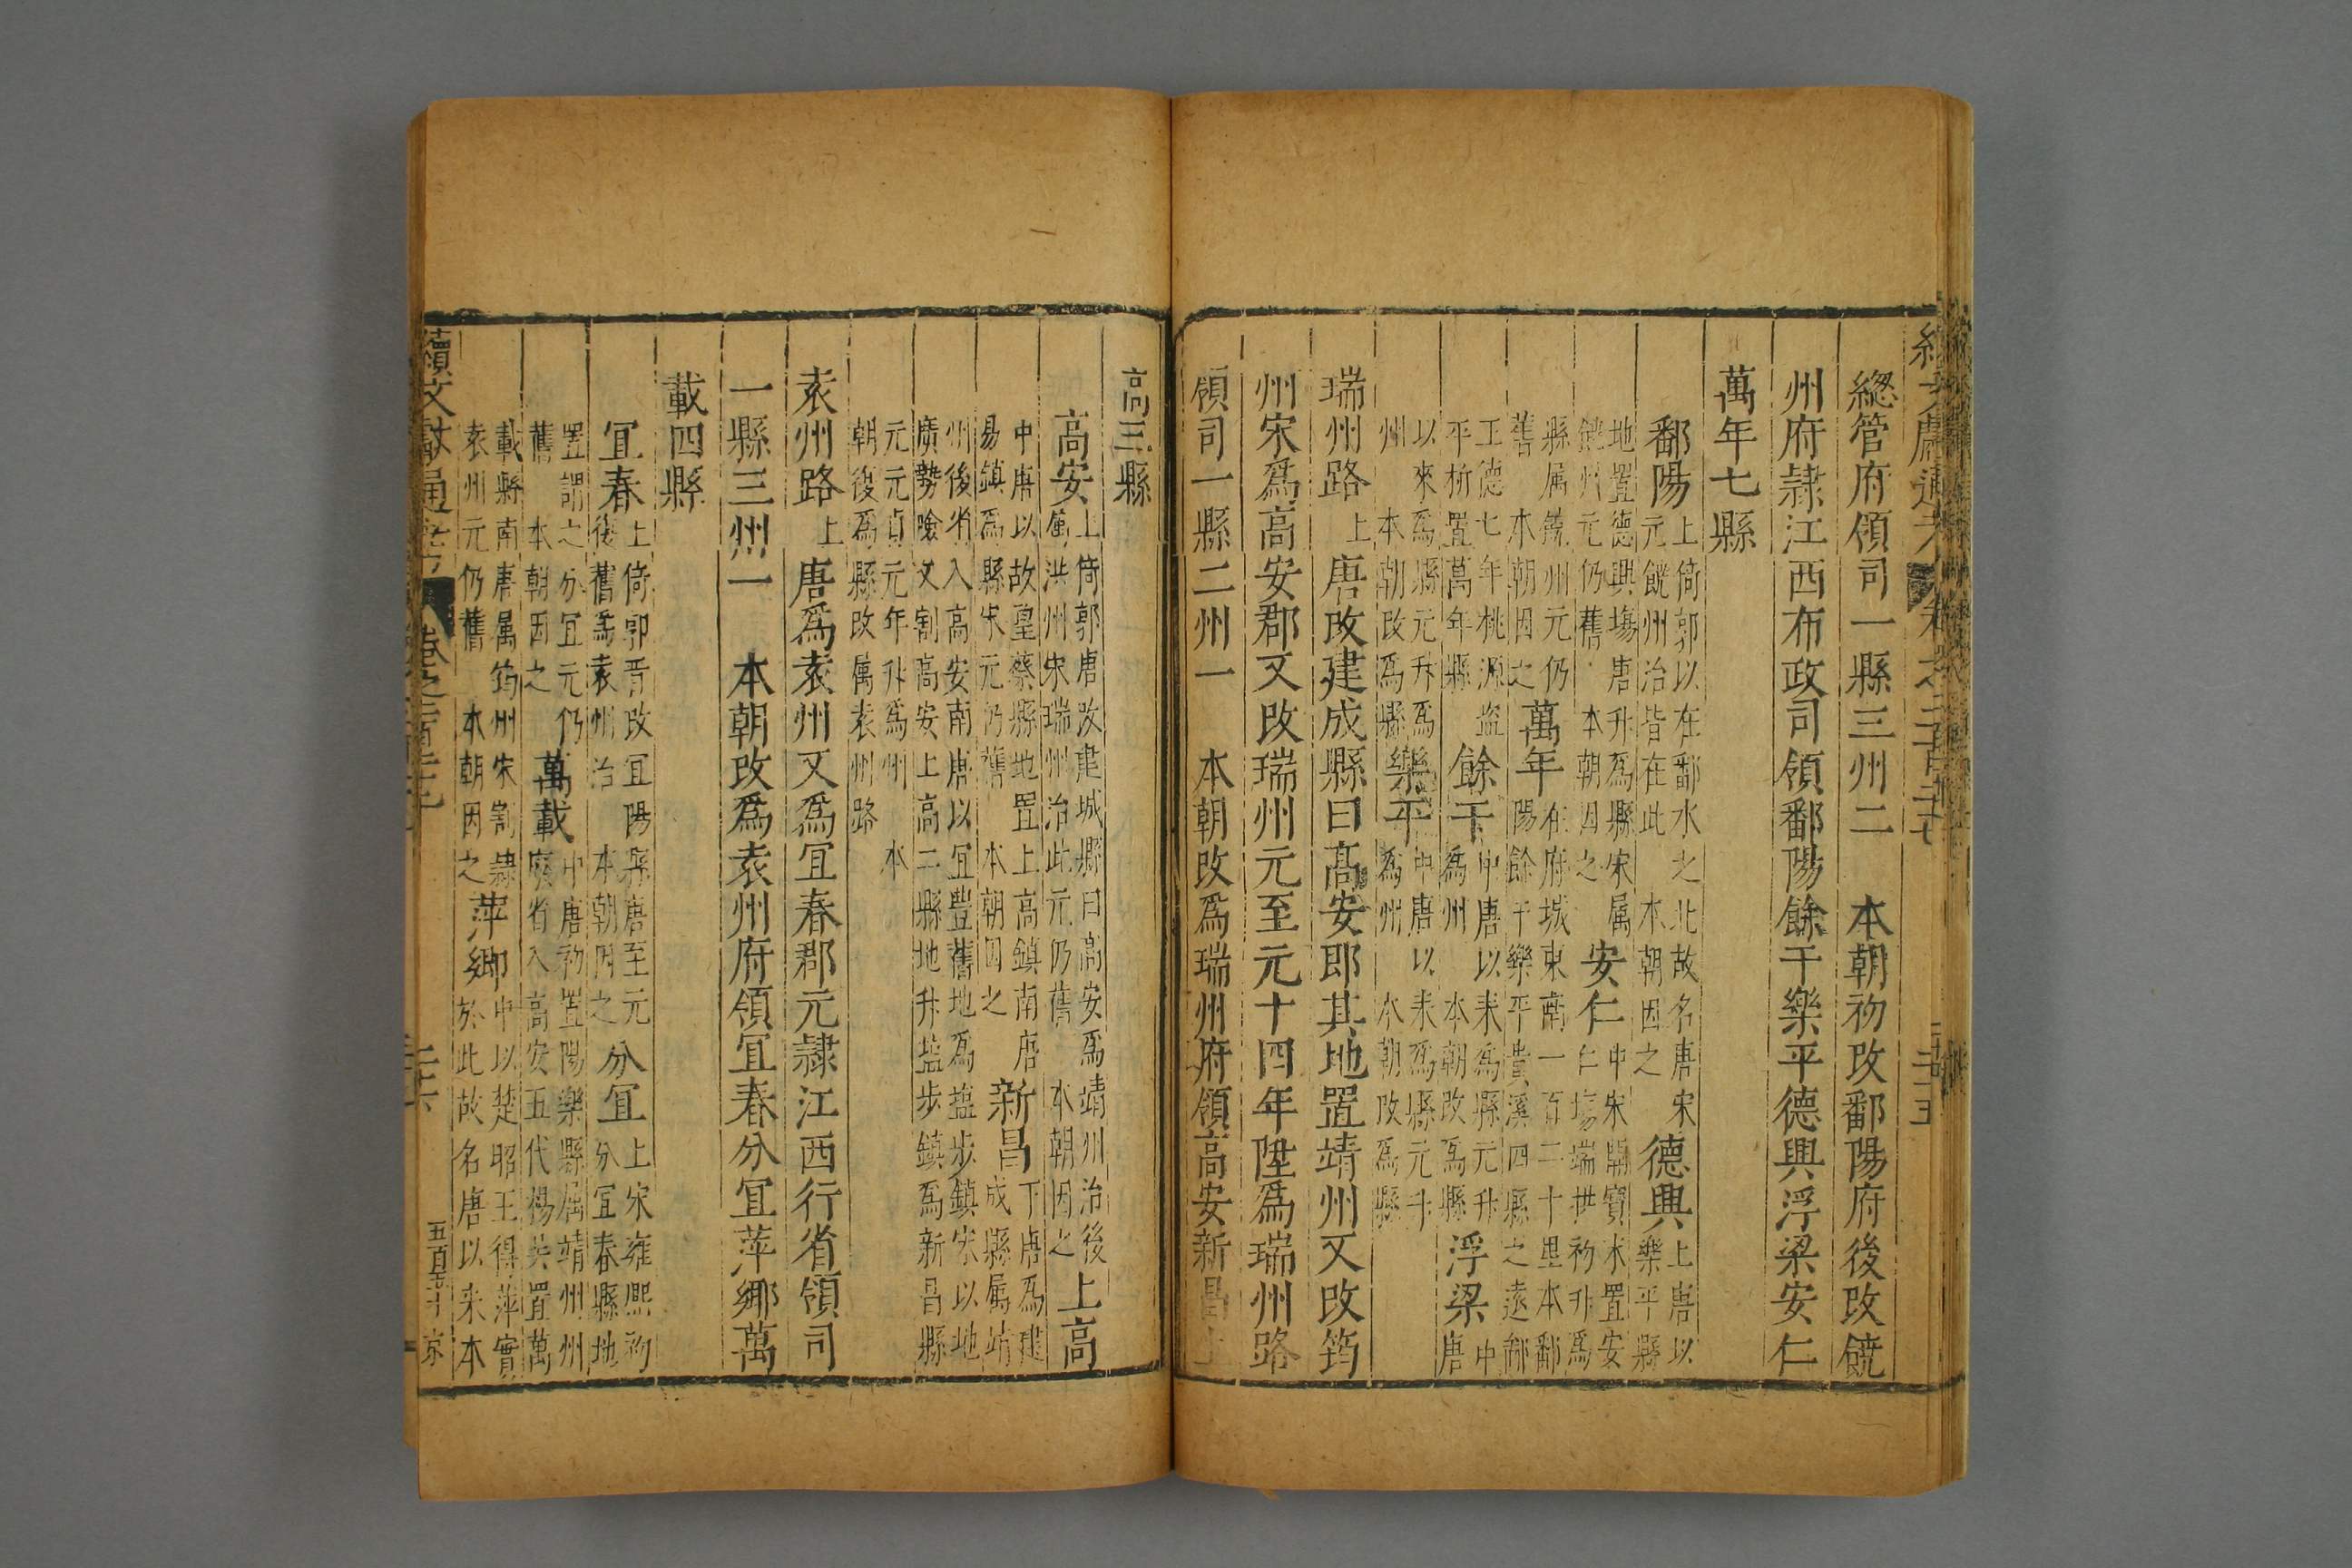 總管府領司一縣三州二　本朝初改鄱陽府後改饒
州府隷江西布政司領鄱陽餘干樂平德興浮梁安仁
萬年七縣
鄱陽
上倚郭以在鄱水之北故名唐宋
元饒州治皆在此　本朝因之
德興
上唐以
樂平縣
地置德興塲唐升為縣宋属
饒州元仍舊　本朝因之
安仁
中宋開寶末置安
仁塲端拱初升為
縣属饒州元仍
舊　本朝因之
萬年
在府城東南一百二十里本鄱
陽餘干樂平貴溪四縣之遠鄙
正德七年桃源盗
平析置萬年縣
餘干
中唐以来為縣元升
為州　本朝改為縣
浮梁
中
唐
以來為縣元升為
州　本朝改為縣
樂平
中唐以来為縣元升
為州　本朝改為縣
瑞州路上唐改建成縣曰髙安即其地置靖州又改筠
州宋爲高安郡又改瑞州元至元十四年陞爲瑞州路
領司一縣二州一　本朝改爲瑞州府領高安新昌上
高三縣
高安
上倚郭唐改建城縣曰高安爲靖州治後
属洪州宋瑞州治此元仍舊　本朝因之
上高
中唐以故望蔡縣地置上高鎮南唐
易鎮爲縣宋元仍舊　本朝因之
新昌
下唐為建
成縣属靖
州後省入高安南唐以宜豐舊地爲塩步鎮宋以地
廣勢險又割高安上高二縣地升塩步鎮爲新昌縣
元元貞元年升爲州　本
朝復爲縣改属袁州路
袁州路上唐爲袁州又爲宜春郡元隷江西行省領司
一縣三州一　本朝改爲袁州府領宜春分宜萍鄉萬
載四縣
宜春
上倚郭晋改宜陽縣唐至元
後舊爲袁州治　本朝因之
分宜
上宋雍熙初
分宜春縣地
置謂之分宜元仍
舊　本朝因之
萬載
中唐初置陽樂縣属靖州州
廢省入高安五代楊氏置萬
載縣南唐属筠州宋割隷
袁州元仍舊　本朝因之
萍鄉
中以楚昭王得萍實
於此故名唐以来本
續文獻通考
卷之二百二十七
二十六
五百五十
京